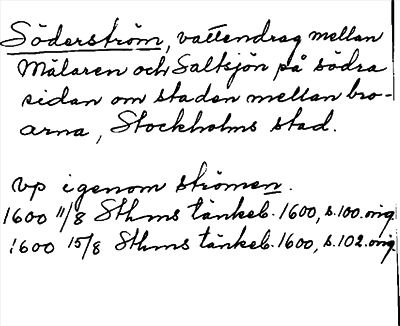 Söderström, vattendrag mellan
Mälaren och Saltsjön på södra
sidan om staden mellan bro-
arna, Stockholms stad.
vp igenom strömen.
1600 11/8 Sthms tänkeb. 1600, s. 100. orig.
1600 15/8 Sthms tänkeb. 1600, s. 102. orig.